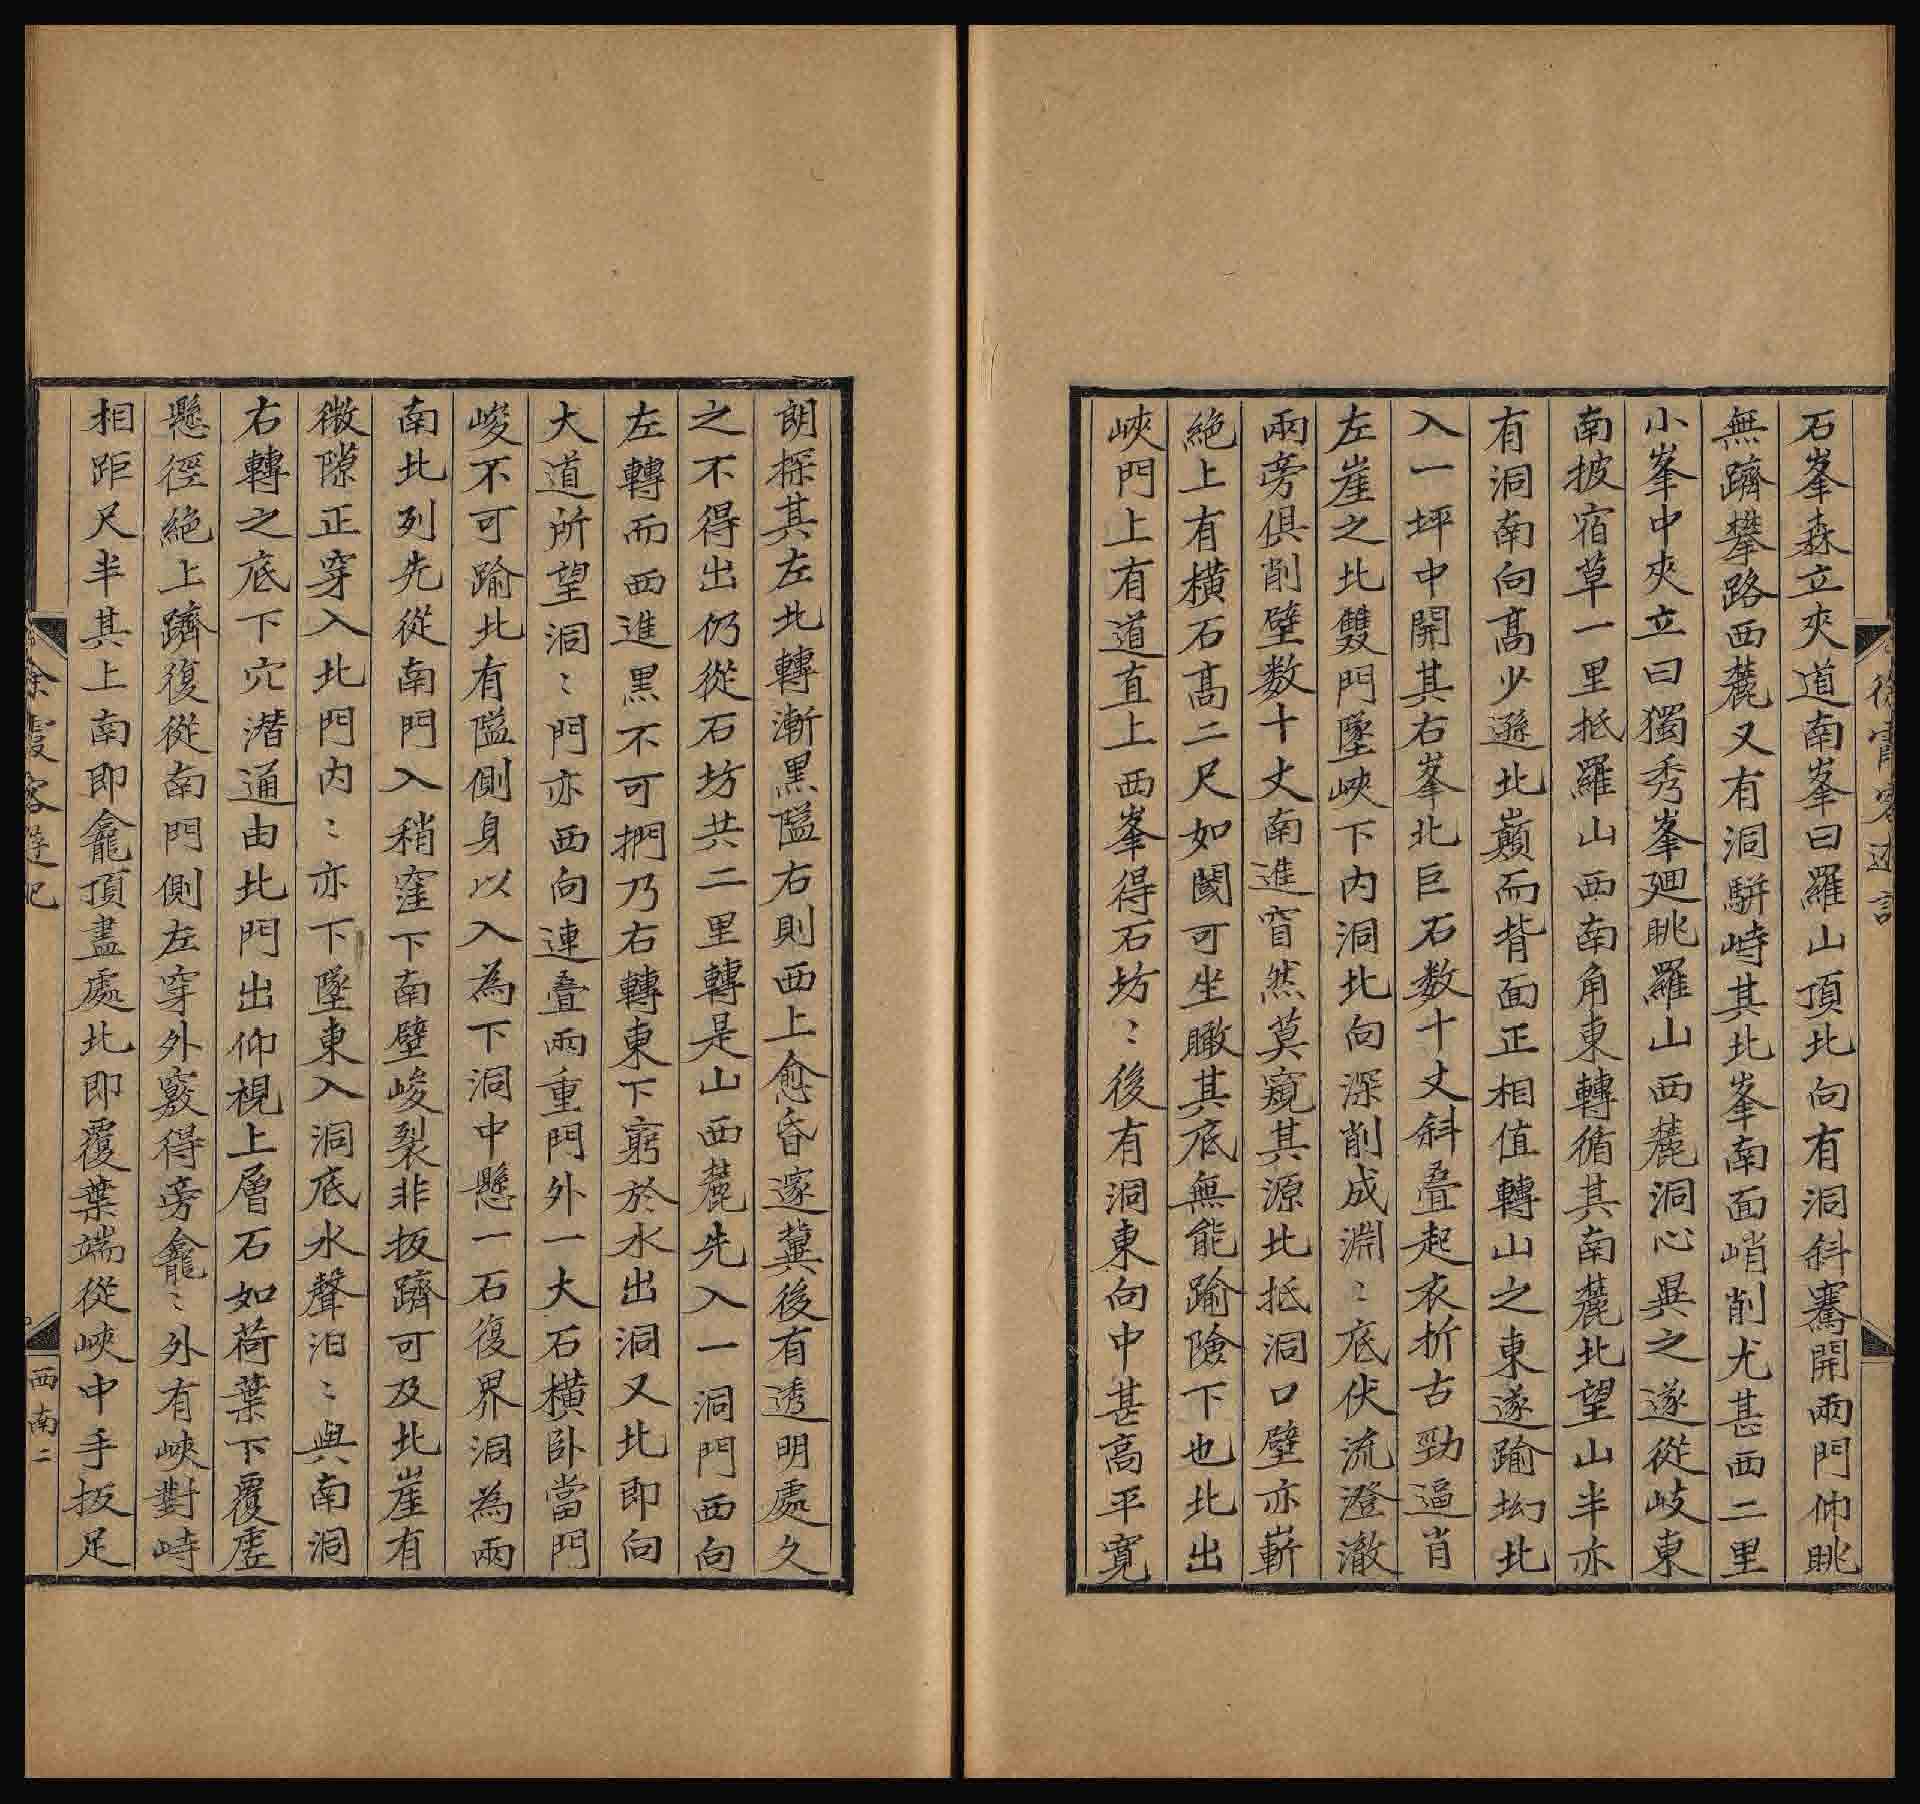 石峯森立夾道南峯曰羅山頂北向有洞斜騫開兩門仰眺
無躋攀路西麓又有洞駢峙其北峯南面峭削尤甚西二里
小峯中夾立曰獨秀峯廻眺羅山西麓洞心異之遂從岐東
南披宿草一里抵羅山西南角東轉循其南麓北望山半亦
有洞南向高少遜北巔而背面正相值轉山之東遂踰坳北
入一坪中開其右峯北巨石数十丈斜疊起衣折古勁逼肖
左崖之北雙門墜峽下內洞北向深削成淵〻底伏流澄澈
兩旁俱削壁数十丈南進窅然莫窺其源北抵洞口壁亦嶄
絕上有橫石高二尺如閾可坐瞰其底無能踰險下也北出
峽門上有道直上西峯得石坊〻後有洞東向中甚高平寛
朗探其左北轉漸黑隘右則西上愈昏邃冀後有透明處久
之不得出仍從石坊共二里轉是山西麓先入一洞門西向
左轉而西進黑不可捫乃右轉東下窮於水出洞又北即向
大道所望洞〻門亦西向連疊兩重門外一大石橫卧當門
峻不可踰北有隘側身以入為下洞中懸一石復界洞為兩
南北列先從南門入稍窪下南壁峻裂非扳躋可及北崖有
微隙正穿入北門内〻亦下墜東入洞底水聲汨〻與南洞
右轉之底下穴潛通由北門出仰視上層石如荷葉下覆虛
懸徑絕上躋復從南門側左穿外竅得旁龕〻外有峽對峙
相距尺半其上南即龕頂盡處北即覆葉端從峽中手扳足
徐霞客遊記
西南二